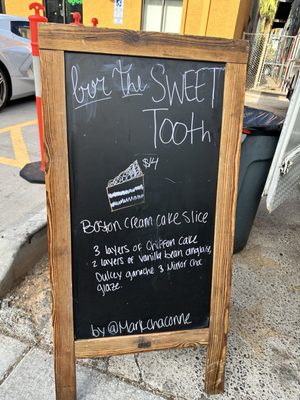 for the SWEET
Tooth
$14
Boston Cream Cake Slice
3 layers of Chiffon Cake
2 layers of vanilla bean anglaise
Dulcey ganache & Mirror Choc
glaze.
by @Mark.chaconne